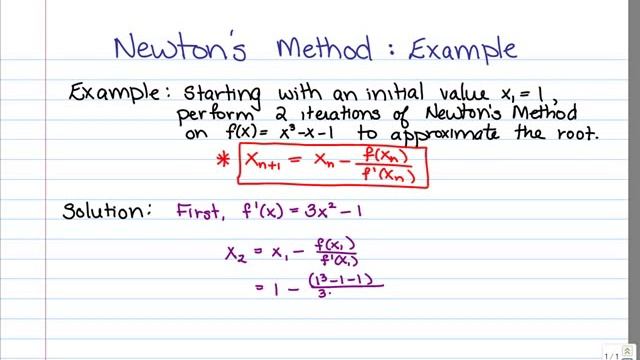 Newton's Method : Example
Example: Starting with an initial value x₁ = 1,
perform 2 iterations of Newton's Method
on f(x) = x³-x-1 to approximate the root.
* xₙ₊₁ = xₙ - f(xₙ)/f'(xₙ)
Solution: First, f'(x) = 3x² - 1
x₂ = x₁ - f(x₁)/f'(x₁)
= 1 - (1³-1-1)/3·
1/1